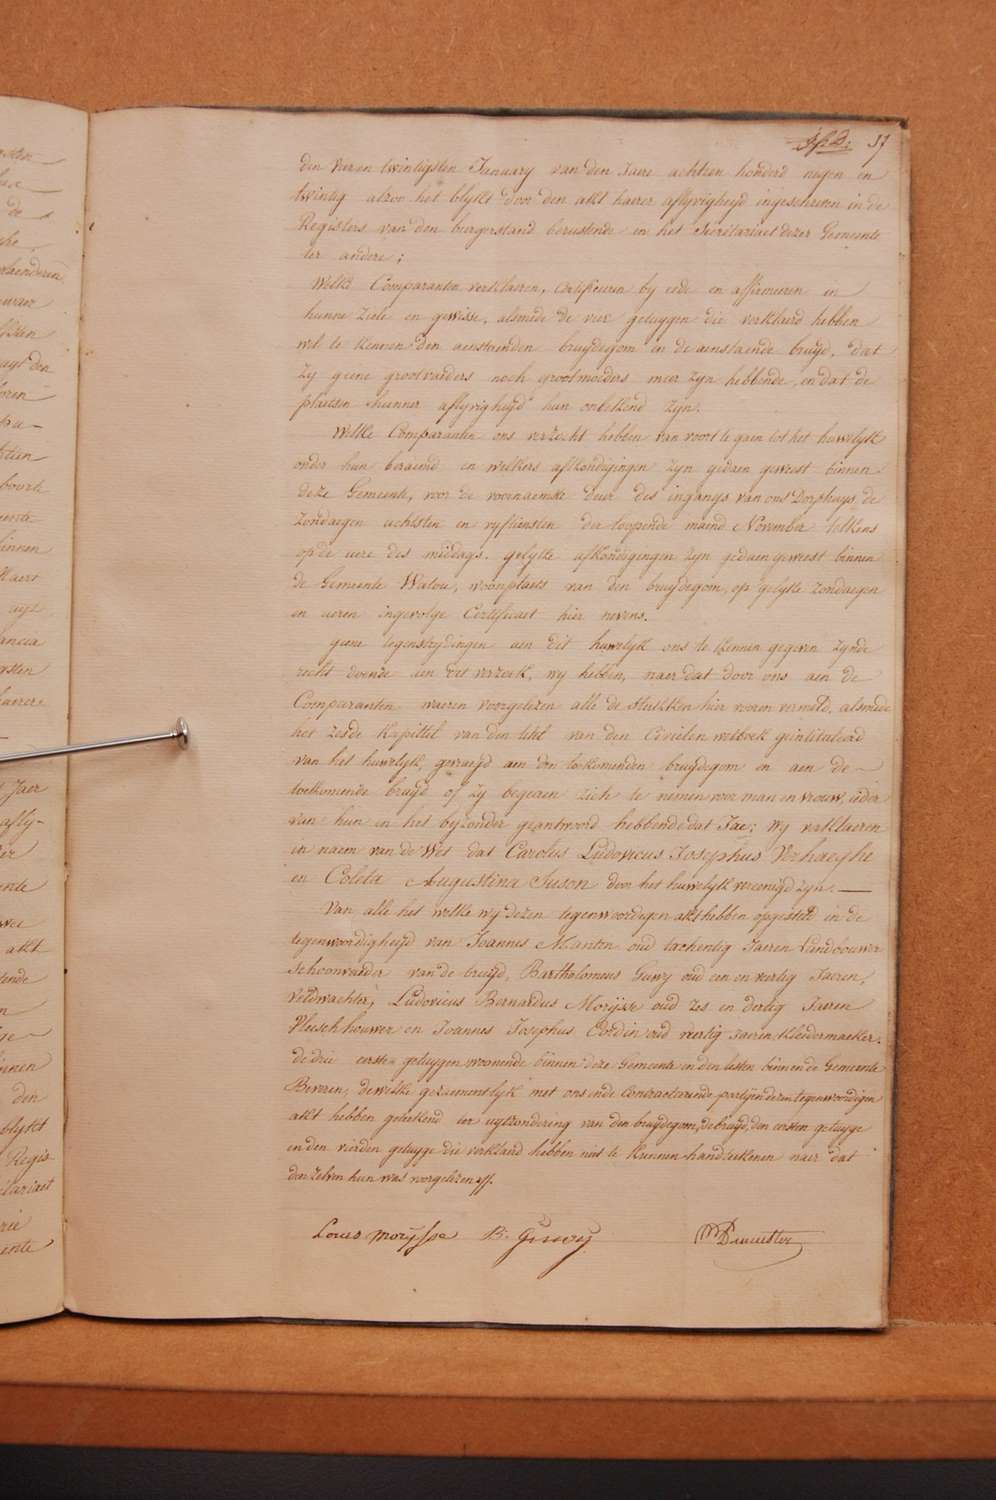 17
den vieren twintigsten January van den Jaere achttien honderd negen en
twintig alzoo het blykt door den akt haerer aflyvigheyd ingeschreven in de
Registers van den burgerstand berustende in het Secretariaet dezer Gemeente
ter andere;
Welke Comparanten verklaeren, certificeren by eede en affirmeeren in
hunne ziele en gewisse, alsmede de vier getuygen die verklaerd hebben
wel te kennen den aenstaenden bruydegom en de aenstaende bruyd, dat
zy geene grootvaeders noch grootmoeders meer zyn hebbende, en dat de
plaetsen hunner aflyvigheyd hun onbekend zyn.
Welke Comparanten ons verzocht hebben van voort te gaen tot het huwelyk
onder hun beraemd en welkers afkondigingen zyn gedaen geweest binnen
deze Gemeente, voor de voornaemste deur des ingangs van ons Dorphuys, de
zondaegen achtsten en vyftiensten der loopende maend November telkens
op de uere des middags. gelyke afkondigingen zyn gedaen geweest binnen
de Gemeente Watou, woonplaets van den bruydegom, op gelyke zondaegen
en ueren ingevolge Certificaet hier nevens.
geene tegenstrydingen aen dit huwelyk ons te kennen gegeven zynde
recht doende aen dit verzoek, wy hebben, naer dat door ons aen de
Comparanten waeren voorgelezen alle de stukken hier vooren vermeld, alsmede
het zesde kapittel van den titel van den Civielen wetboek geintituleerd
van het huwelyk, gevraegd aen den toekomenden bruydegom en aen de
toekomende bruyd of zy begeeren zich te nemen voor man en vrouw, ieder
van hun in het byzonder geantwoord hebbende dat Jae; wy verklaeren
in naem van de Wet dat Carolus Ludovicus Josephus Verhaeghe
en Coleta Augustina Suson door het huwelyk vereenigd zyn.
Van alle het welke wy dezen tegenwoordigen akt hebben opgesteld in de
tegenwoordigheyd van Joannes Manton oud tachentig Jaeren Landbouwer
Schoonvader van de bruyd, Bartholomeus Guwy oud een en veertig Jaeren,
Veldwachter, Ludovicus Bernardus Morysse oud zes en dertig Jaeren
Vleeschhouwer en Joannes Josephus Cordin oud veertig Jaeren, kleedermaeker.
de drie eerste getuygen woonende binnen deze Gemeente en den lesten binnen de Gemeente
Beveren, dewelke gezamentlyk met ons ende contracteerende partyen dezen tegenwoordigen
akt hebben geteekend ter uytzondering van den bruydegom, de bruyd, den eersten getuyge
en den vierden getuyge die verklaerd hebben niet te kunnen handteekenen naer dat
dezelven hun was voorgelezen
Louis Morysse B. Guwy Demeester